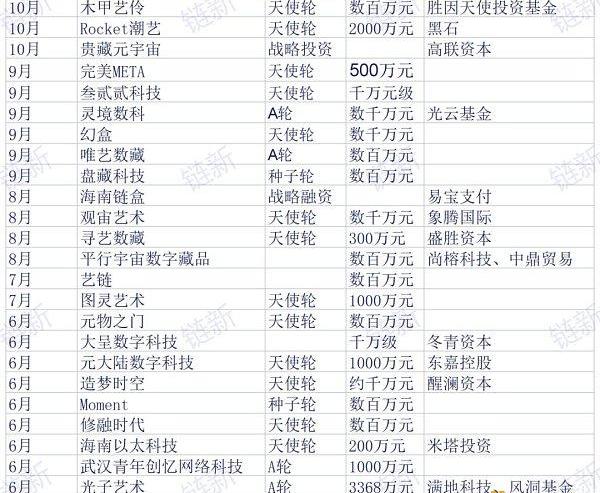 10月 木甲艺伶 天使轮 数百万元 胜因天使投资基金
10月 Rocket潮艺 天使轮 2000万元 黑石
10月 贵藏元宇宙 战略投资 高联资本
9月 完美META 天使轮 500万元
9月 叁贰贰科技 天使轮 千万元级
9月 灵境数科 A轮 数千万元 光云基金
9月 幻盒 天使轮 数千万元
9月 唯艺数藏 A轮 数百万元
9月 盘藏科技 种子轮 数百万元
8月 海南链盒 战略融资 易宝支付
8月 观宙艺术 天使轮 数千万元 象腾国际
8月 寻艺数藏 天使轮 300万元 盛胜资本
8月 平行宇宙数字藏品 数百万元 尚榕科技、中鼎贸易
7月 艺链 数百万元
7月 图灵艺术 天使轮 1000万元
6月 元物之门 天使轮 数百万元
6月 大呈数字科技 千万级 冬青资本
6月 元大陆数字科技 天使轮 1000万元 东嘉控股
6月 造梦时空 天使轮 约千万元 醒澜资本
6月 Moment 种子轮 数百万元
6月 修融时代 天使轮 数百万元
6月 海南以太科技 天使轮 200万元 米塔投资
6月 武汉青年创忆网络科技 A轮 1000万元
6月 光子艺术 A轮 3368万元 满地科技、风洞基金
链新